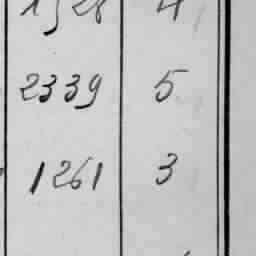 1528 4
2339 5
1261 3